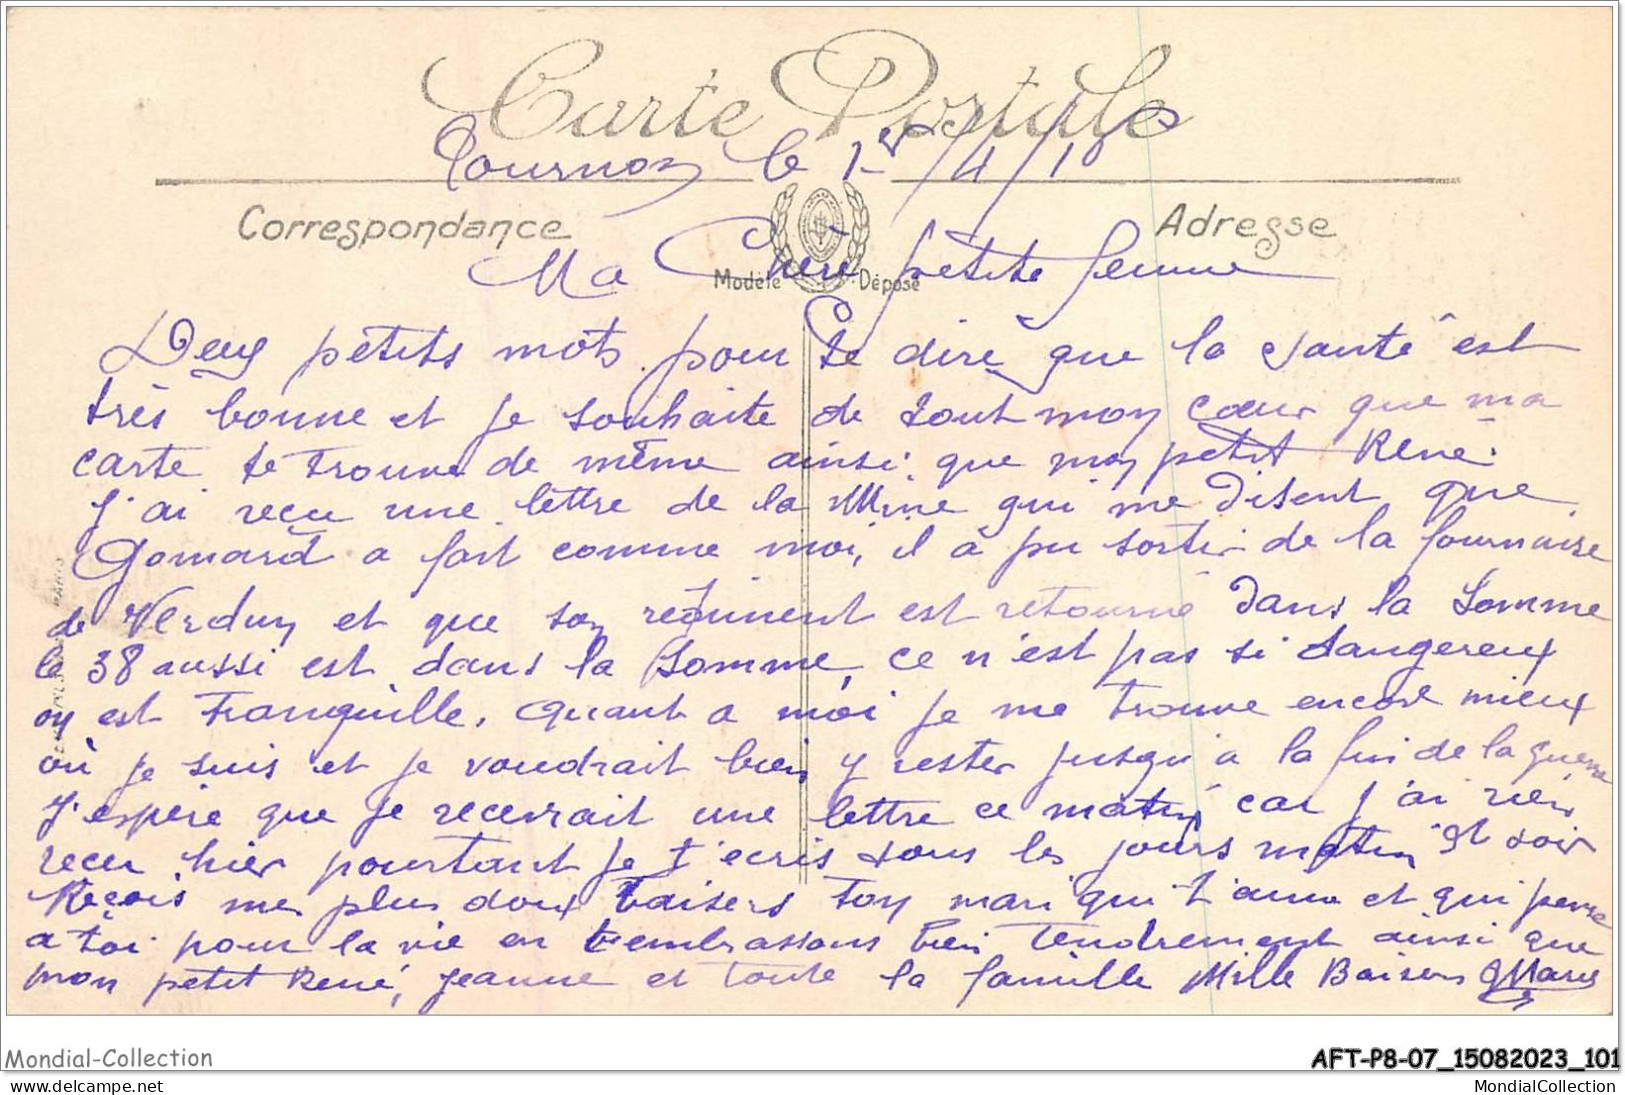 Carte Postale
Tournon le 1er/4/1
Correspondance
Adresse
Modèle Déposé
Ma Chère petite femme
Deux petits mots pour te dire que la santé est
très bonne et je souhaite de tout mon cœur que ma
carte te trouve de même ainsi que mon petit René.
J'ai reçu une lettre de la Mine qui me disent que
Gomard a fait comme moi, il a pu sortir de la fournaise
de Verdun et que son régiment est retourné dans la Somme
le 38 aussi est dans la Somme, ce n'est pas si dangereux
on est tranquille. Quant a moi je me trouve encore mieux
où je suis et je voudrait bien y rester jusqu'à la fin de la guerre
J'espère que je recevrait une lettre ce matin car j'ai rien
recu hier pourtant je t'ecris tous les jours matin et soir
Reçois mes plus doux baisers ton mari qui t'aime et qui pense
a toi pour la vie en t'embrassans bien tendrement ainsi que
mon petit René, Jeanne et toute la famille Mille Baisers
Mondial-Collection
AFT-P8-07_15082023_101
www.delcampe.net
MondialCollection